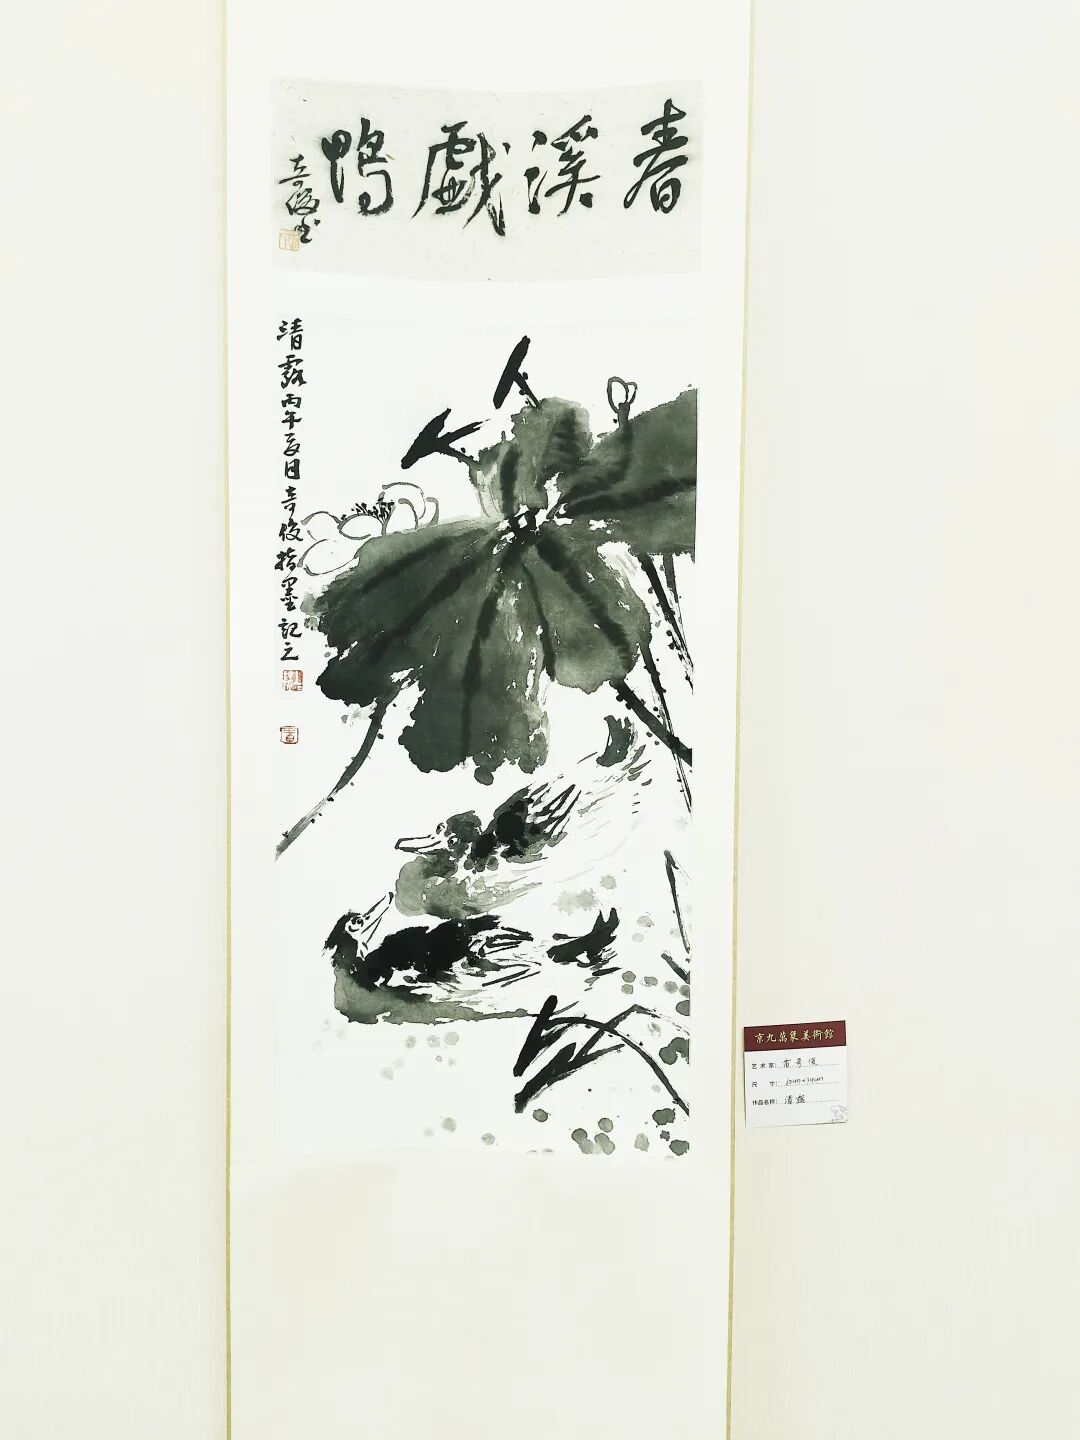 春溪戲鴨
奇俊书
清露丙午夏日奇俊指墨記之
京九萬象美術館
艺术家:
尺 寸:
作品名称: 清露